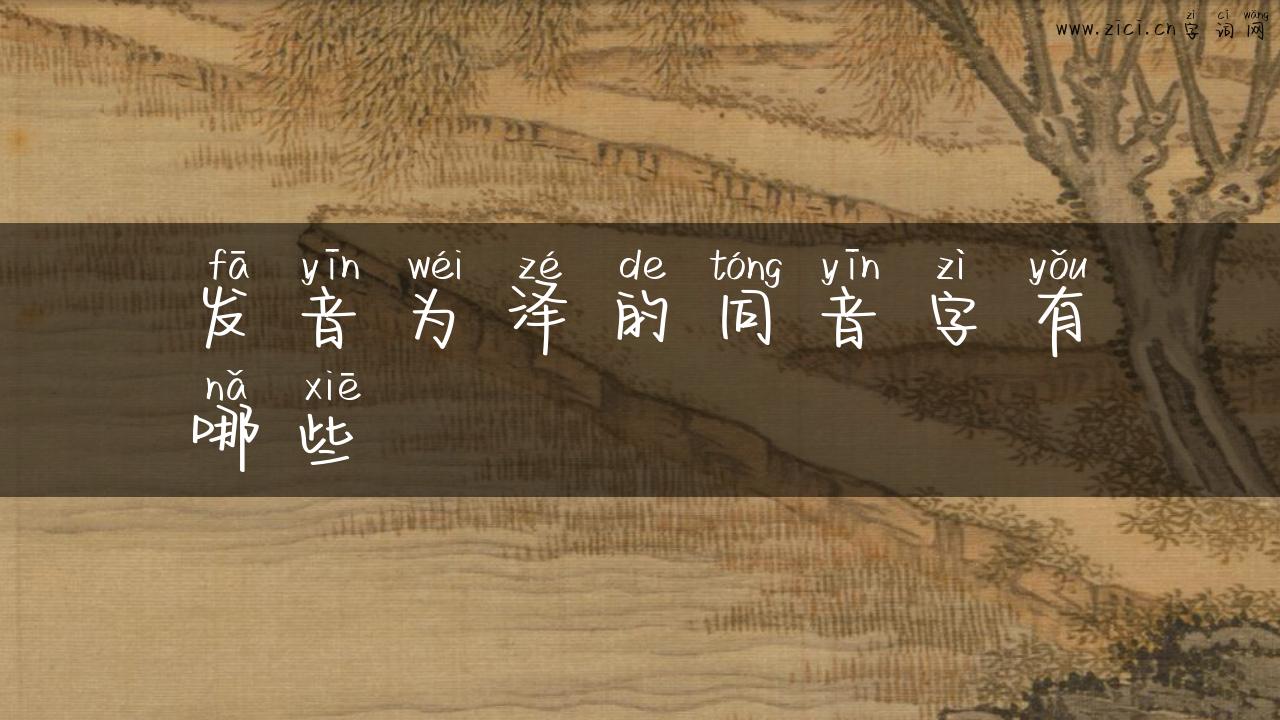 zì cí wǎng
www.zici.cn字词网
fā yīn wéi zé de tóng yīn zì yǒu
发音为泽的同音字有
nǎ xiē
哪些